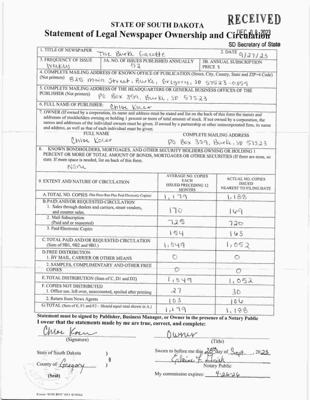 STATE OF SOUTH DAKOTA
RECEIVED
Statement of Legal Newspaper Ownership and Circulation
SD Secretary of State
1. TITLE OF NEWSPAPER
The Burke Gazette
2. DATE
9/27/23
3. FREQUENCY OF ISSUE
Weekly
3A. NO. OF ISSUES PUBLISHED ANNUALLY
52
3B. ANNUAL SUBSCRIPTION PRICE $
4. COMPLETE MAILING ADDRESS OF KNOWN OFFICE OF PUBLICATION (Street, City, County, State and ZIP+4 Code) (Not printers)
Main Street, Burke, Gregory, SD 57523-0359
5. COMPLETE MAILING ADDRESS OF THE HEADQUARTERS OF GENERAL BUSINESS OFFICES OF THE PUBLISHER (Not printer)
PO Box 359, Burke, SD 57523
6. FULL NAME OF PUBLISHER:
7. OWNER (If owned by a corporation, its name and address must be stated and also on the back of this form the names and addresses of stockholders owning or holding 1 percent or more of total amount of stock. If not owned by a corporation, the names and addresses of the individual owners must be given. If owned by a partnership or other unincorporated firm, its name and address, as well as that of each individual must be given.
FULL NAME
COMPLETE MAILING ADDRESS
PO Box 359, Burke, SD 57523
8. KNOWN BONDHOLDERS, MORTGAGES, AND OTHER SECURITY HOLDERS OWNING OR HOLDING 1 PERCENT OR MORE OF TOTAL AMOUNT OF BONDS, MORTGAGES OR OTHER SECURITIES (If there are none, so state. If more space is needed, list on back of this form.
None
9. EXTENT AND NATURE OF CIRCULATION
AVERAGE NO. COPIES EACH ISSUED PRECEDING 12 MONTHS
ACTUAL NO. COPIES ISSUED NEAREST TO FILING DATE
A. TOTAL NO. COPIES
1,179
1,188
B. PAID AND/OR REQUESTED CIRCULATION
1. Sales through dealers and carriers, street vendors, and counter sales.
170
169
2. Mail Subscription (Paid and or requested)
725
720
3. Paid Electronic Copies
154
163
C. TOTAL PAID AND/OR REQUESTED CIRCULATION (Sum of 9B1, 9B2 and 9B3.)
1,049
1,052
D. FREE DISTRIBUTION
1. BY MAIL, CARRIER OR OTHER MEANS
0
0
2. SAMPLES, COMPLIMENTARY AND OTHER FREE COPIES
0
0
E. TOTAL DISTRIBUTION (Sum of C, D1 and D2)
1,049
1,052
F. COPIES NOT DISTRIBUTED
1. Office use, left over, unaccounted, spoiled after printing
27
30
2. Return from News Agents
103
106
1,179
1,188
Statement must be signed by Publisher, Business Manager, or Owner in the presence of a Notary Public
I swear that the statements made by me are true, correct, and complete:
Owner
(Signature)
(Title)
State of South Dakota )
Sworn to before me this
day of Sept. 2023
County of Gregory )
Notary Public
(Seal)
My commission expires:
4-26-26